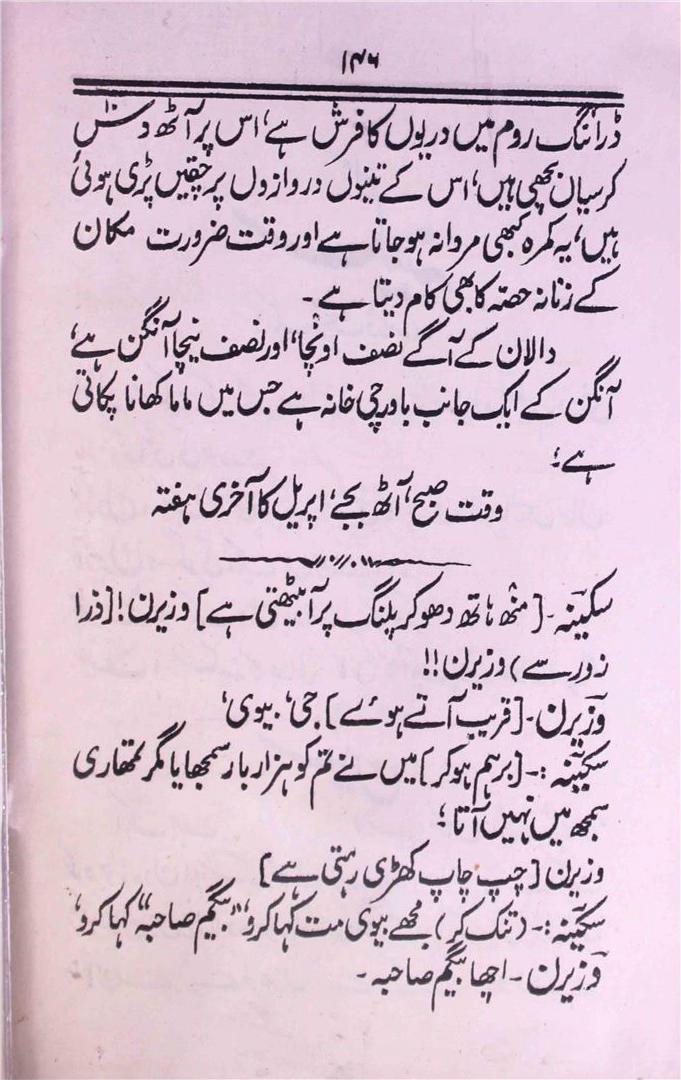 ۱۴۶
ڈرائنگ روم میں دریوں کا فرش ہے، اس پر آٹھ دس
کرسیان بچھی ہیں، اس کے تینوں دروازوں پر چقیں پڑی ہوئی
ہیں، یہ کمرہ کبھی مروانہ ہوجاتا ہے اور وقت ضرورت مکان
کے زنانہ حصتہ کا بھی کام دیتا ہے ۔
دالان کے آگے نصف اونچا، اور نصف نیچا آنگن ہے،
آنگن کے ایک جانب باورچی خانہ ہے جس میں ماما کھانا پکاتی
ہے؛
وقت صبح، آٹھ بجے، اپریل کا آخری ہفتہ
سکینہ ۔ [منھ ہاتھ دھوکر پلنگ پر آبیٹھتی ہے] وزیرن! [ذرا
زور سے) وزیرن!!
وزیرن ۔ [قریب آتے ہوئے] جی، بیوی،
سکینہ :۔ [برہم ہوکر] میں نے تم کو ہزار بار سمجھایا مگر تمھاری
سمجھ میں نہیں آتا؛
وزیرن [چپ چاپ کھڑی رہتی ہے]
سکینہ :۔ (تنک کر) مجھے بیوی مت کہا کرو، "بیگم صاحبہ" کہا کرو،
وزیرن ۔ اچھا بیگم صاحبہ ۔